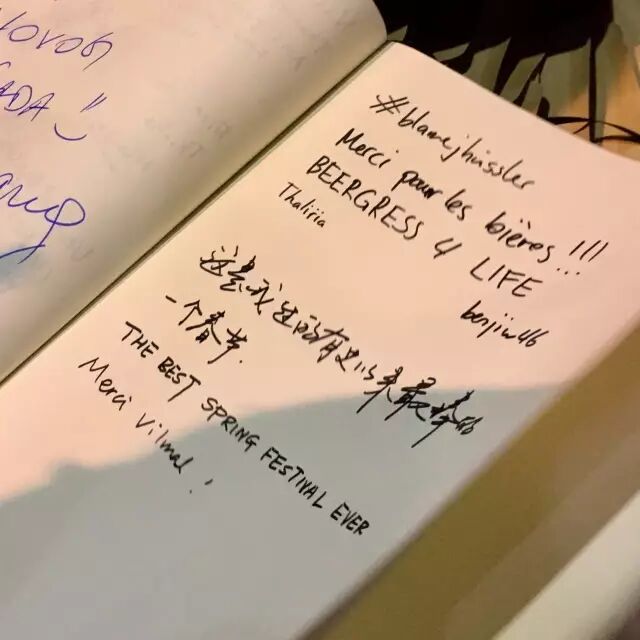 #blamejhussler
Merci pour les bières!!!
BEERGRESS 4 LIFE
Thaliria
这是我过的有史以来最棒的
一个春节.
THE BEST SPRING FESTIVAL EVER
Merci Vilmal!